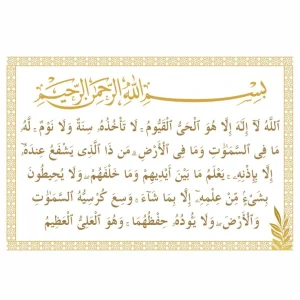 بِسْمِ اللَّهِ الرَّحْمَٰنِ الرَّحِيمِ
اللَّهُ لَآ إِلَٰهَ إِلَّا هُوَ الْحَىُّ الْقَيُّومُ ۚ لَا تَأْخُذُهُۥ سِنَةٌ وَلَا نَوْمٌ ۚ لَّهُۥ
مَا فِى السَّمَٰوَٰتِ وَمَا فِى الْأَرْضِ ۗ مَن ذَا الَّذِى يَشْفَعُ عِندَهُۥٓ
إِلَّا بِإِذْنِهِۦ ۚ يَعْلَمُ مَا بَيْنَ أَيْدِيهِمْ وَمَا خَلْفَهُمْ ۖ وَلَا يُحِيطُونَ
بِشَىْءٍ مِّنْ عِلْمِهِۦٓ إِلَّا بِمَا شَآءَ ۚ وَسِعَ كُرْسِيُّهُ السَّمَٰوَٰتِ
وَالْأَرْضَ ۖ وَلَا يَـُٔودُهُۥ حِفْظُهُمَا ۚ وَهُوَ الْعَلِىُّ الْعَظِيمُ